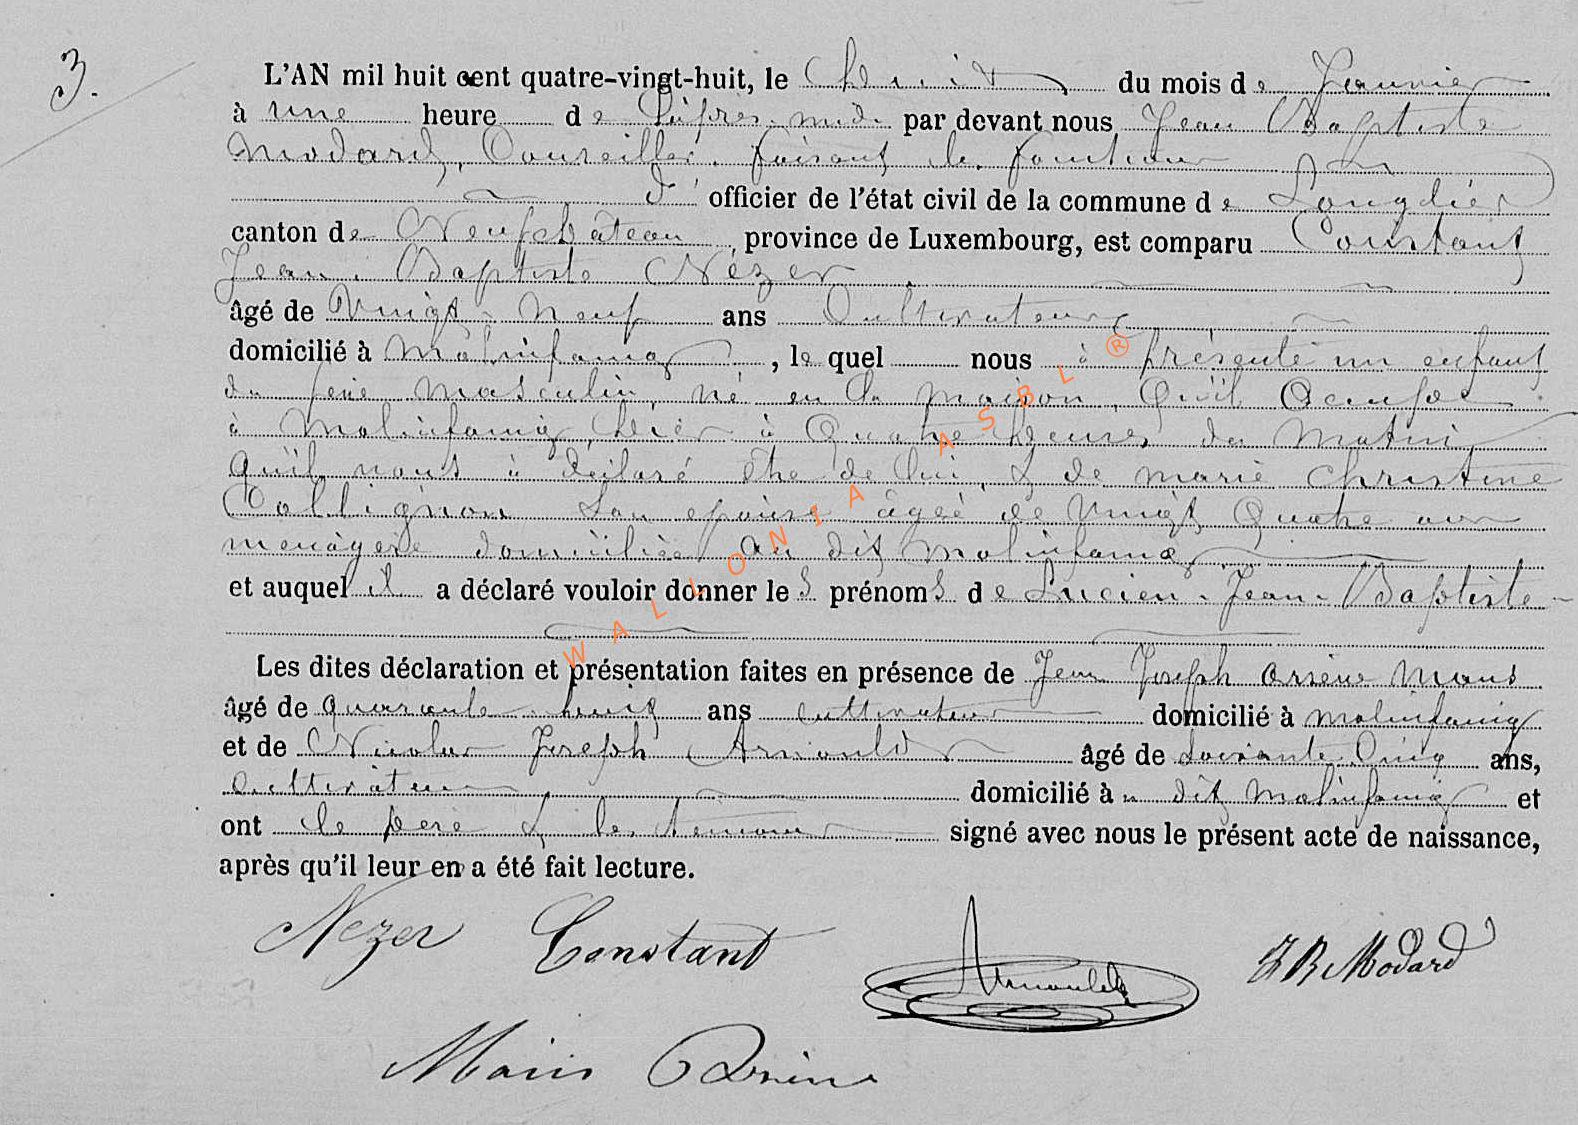 3.
L'AN mil huit cent quatre-vingt-huit, le huit du mois de Janvier
à une heure de l'après midi par devant nous, Jean Baptiste
Modard, Conseiller faisant les fonctions
d' officier de l'état civil de la commune de Longlier
canton de Neufchâteau, province de Luxembourg, est comparu Constant
Jean Baptiste Nézer
âgé de Vingt Neuf ans Cultivateur
domicilié à Molinfaing, le quel nous à présenté un enfant
du sexe masculin, né en la maison, Qu'il Occupe
à Molinfaing, hier à Quatre heures du Matin
qu'il nous à déclaré être de lui, & de marie christine
Collignon Son epouse âgée de Vingt Quatre ans
menagere domiciliée au dit Molinfaing
et auquel il a déclaré vouloir donner les prénoms de Lucien Jean Baptiste
Les dites déclaration et présentation faites en présence de Jean Joseph arsène Maus
âgé de quarante huit ans cultivateur domicilié à molinfaing
et de Nicolas Joseph Arnould âgé de Soixante Cinq ans,
Cultivateur domicilié à u dit Molinfaing et
ont le père & les témoins signé avec nous le présent acte de naissance,
après qu'il leur en a été fait lecture.
Nezer Constant
Arnould
J B Modard
WALLONIA ASBL ®